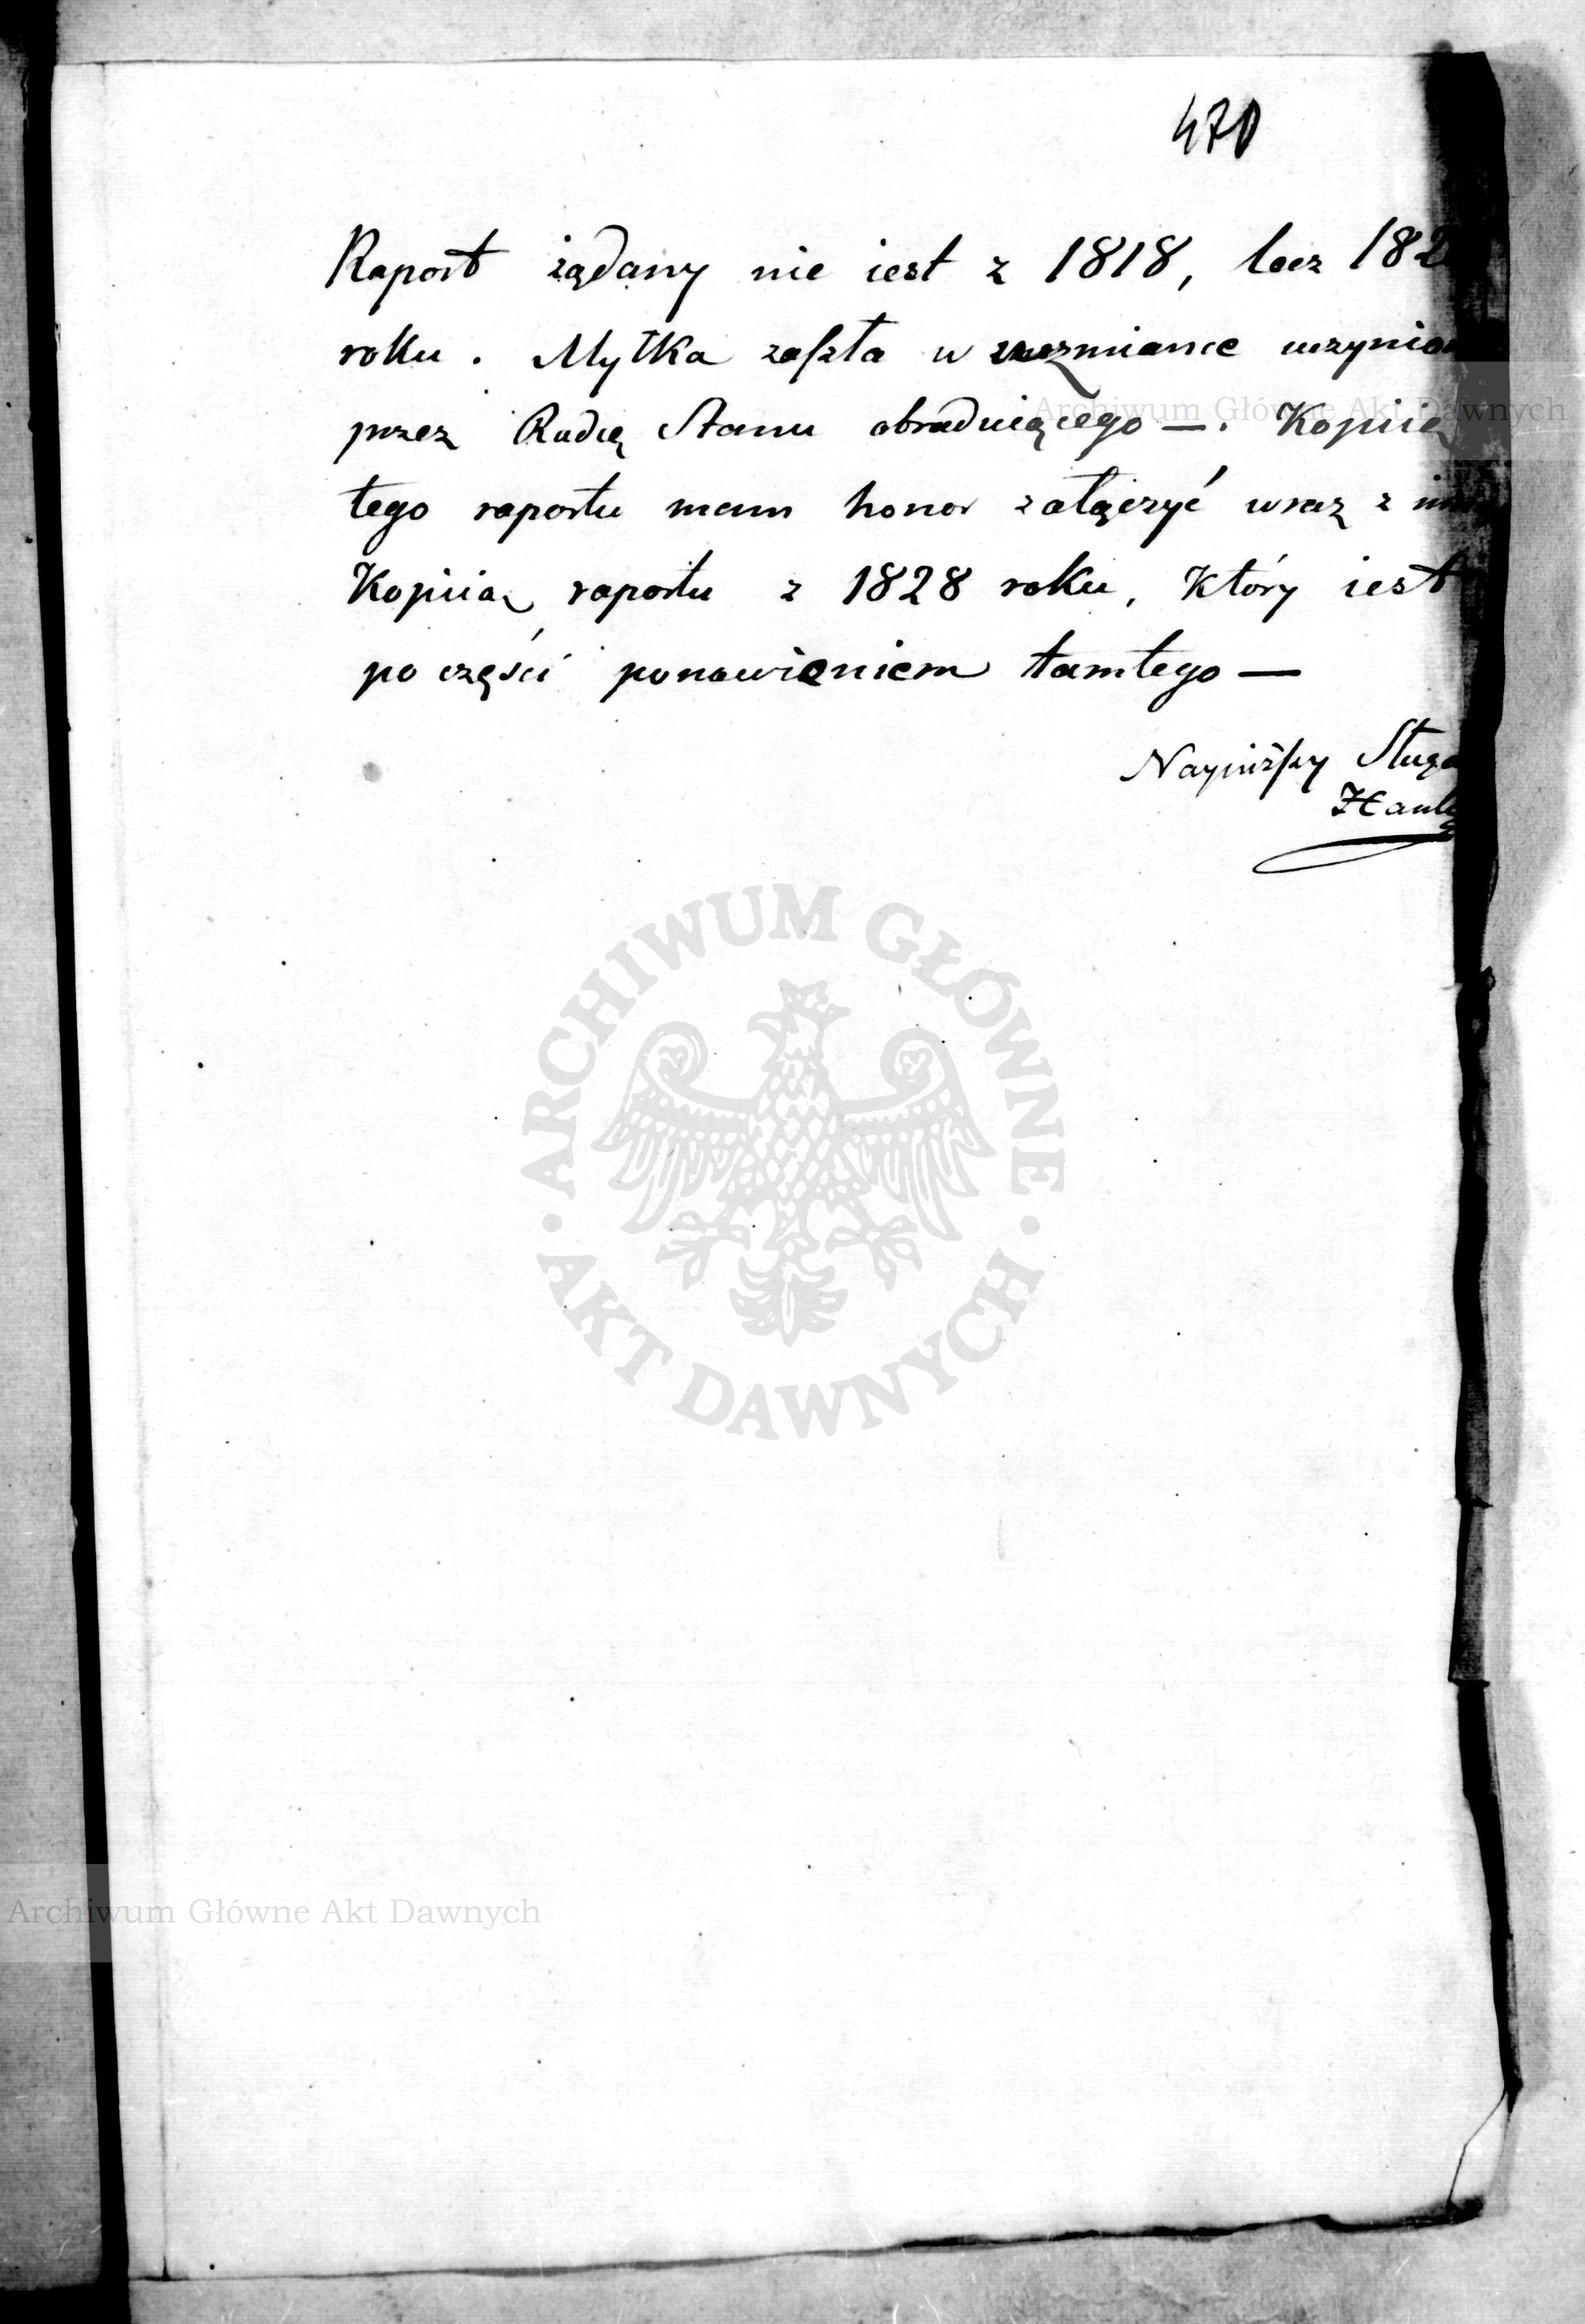 470
Raport żądany nie iest z 1818, lecz 182
roku. Myłka zaszła w wzmiance uczynio
Archiwum Główne Akt Dawnych
przez Radcę Stanu obraduiącego —. Kopiią
tego raportu mam honor załączyć wraz z
Kopiią raportu z 1828 roku, który iest
po części ponowieniem tamtego —
Nayniższy Sługa
ARCHIWUM GŁÓWNE
AKT DAWNYCH
Archiwum Główne Akt Dawnych